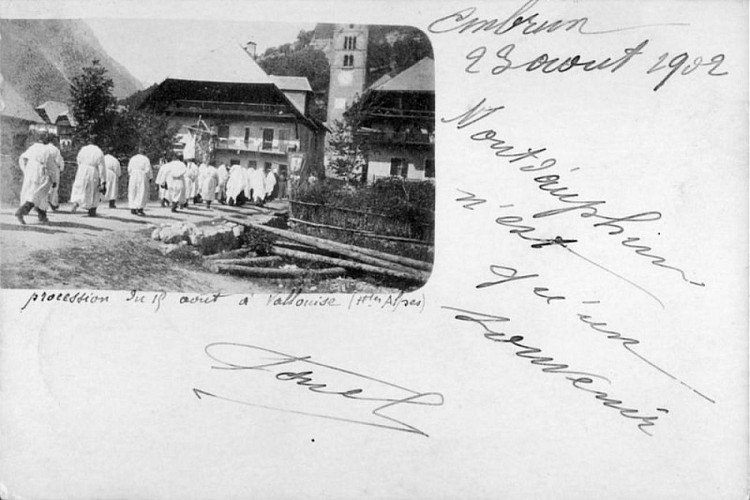 Embrun
23 aout 1902
Montdauphin
n'est
qu'un
souvenir
procession du 15 aout à Vallouise (Htes Alpes)